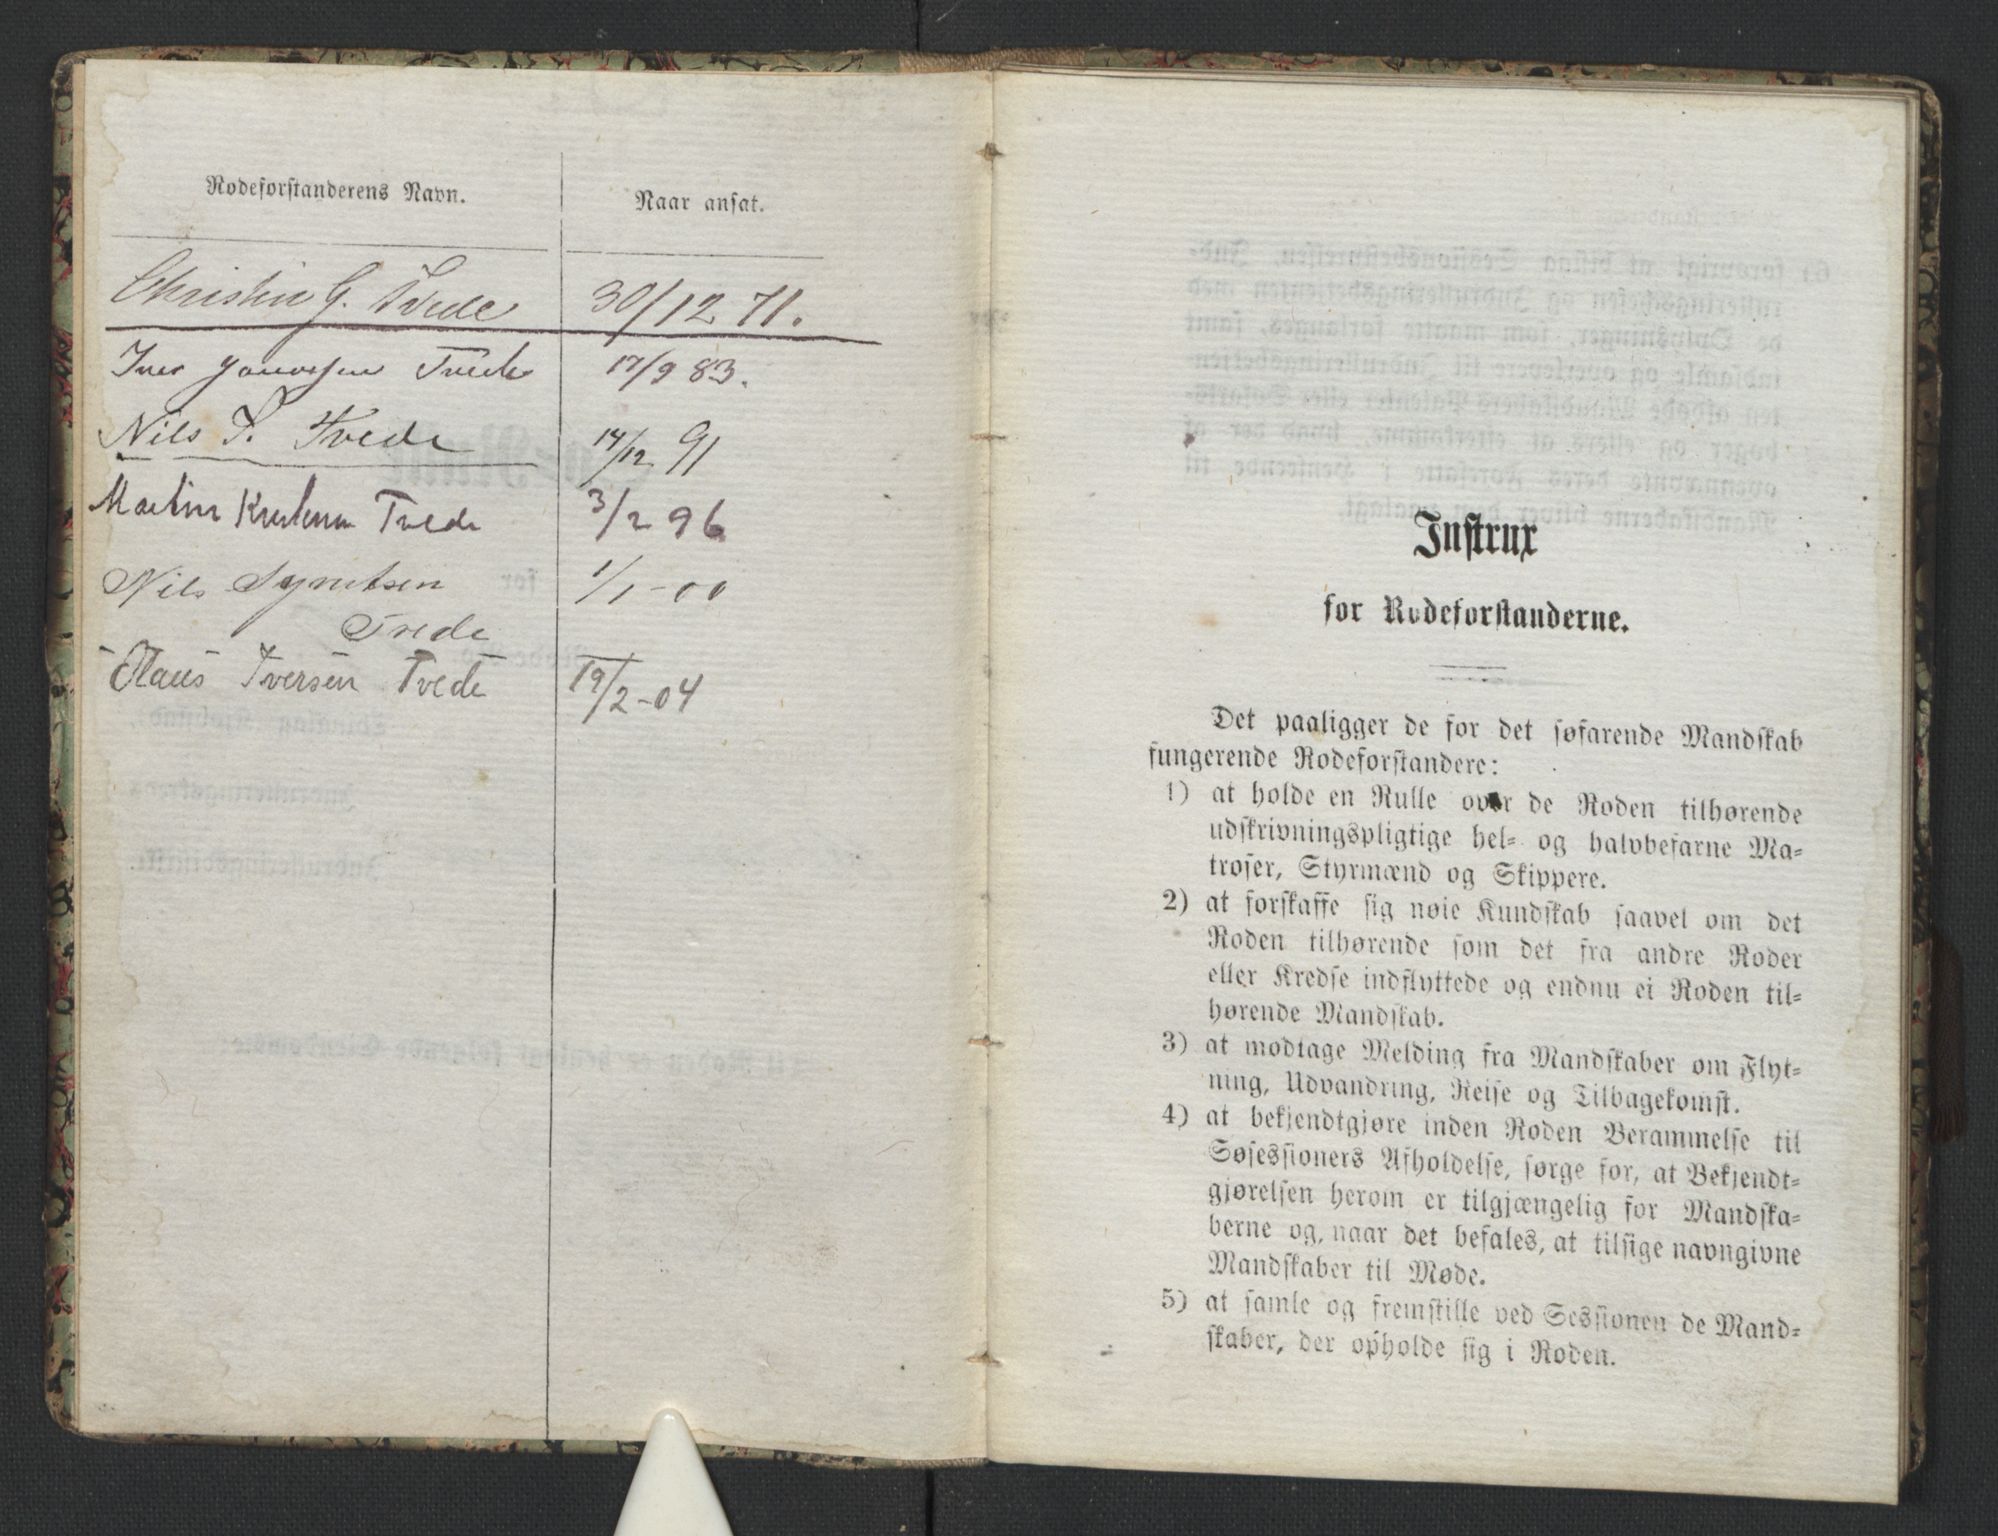 Rodeforstanderens Navn.
Naar ansat.
Christen G. Tvede 30/12 71.
Iver Tvede 17/9 83.
Nils S. Tvede 14/12 91
Martin Tvede 3/2 96
Nils Syvertsen 1/1-00
Tvede
Claus Iversen Tvede 19/2-04
Instrux
for Rodeforstanderne.
Det paaligger de for det søfarende Mandskab
fungerende Rodeforstandere:
1) at holde en Rulle over de Roden tilhørende
udskrivningspligtige hel- og halvbefarne Ma-
troser, Styrmænd og Skippere.
2) at forskaffe sig nøie Kundskab saavel om det
Roden tilhørende som det fra andre Roder
eller Kredse indflyttede og endnu ei Roden til-
hørende Mandskab.
3) at modtage Melding fra Mandskaber om Flyt-
ning, Udvandring, Reise og Tilbagekomst.
4) at bekjendtgjøre inden Roden Berammelse til
Søsessioners Afholdelse, sørge for, at Bekjendt-
gjørelsen herom er tilgjængelig for Mandska-
berne og, naar det befales, at tilsige navngivne
Mandskaber til Møde.
5) at samle og fremstille ved Sessionen de Mand-
skaber, der opholde sig i Roden.